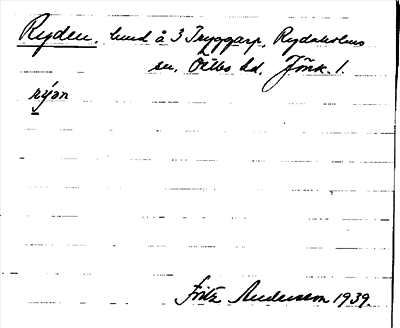 Ryden. lund å 3 Tryggarp, Rydaholms
sn, Östbo hd. Jönk. l.
rýən
Fritz Andersson 1939.